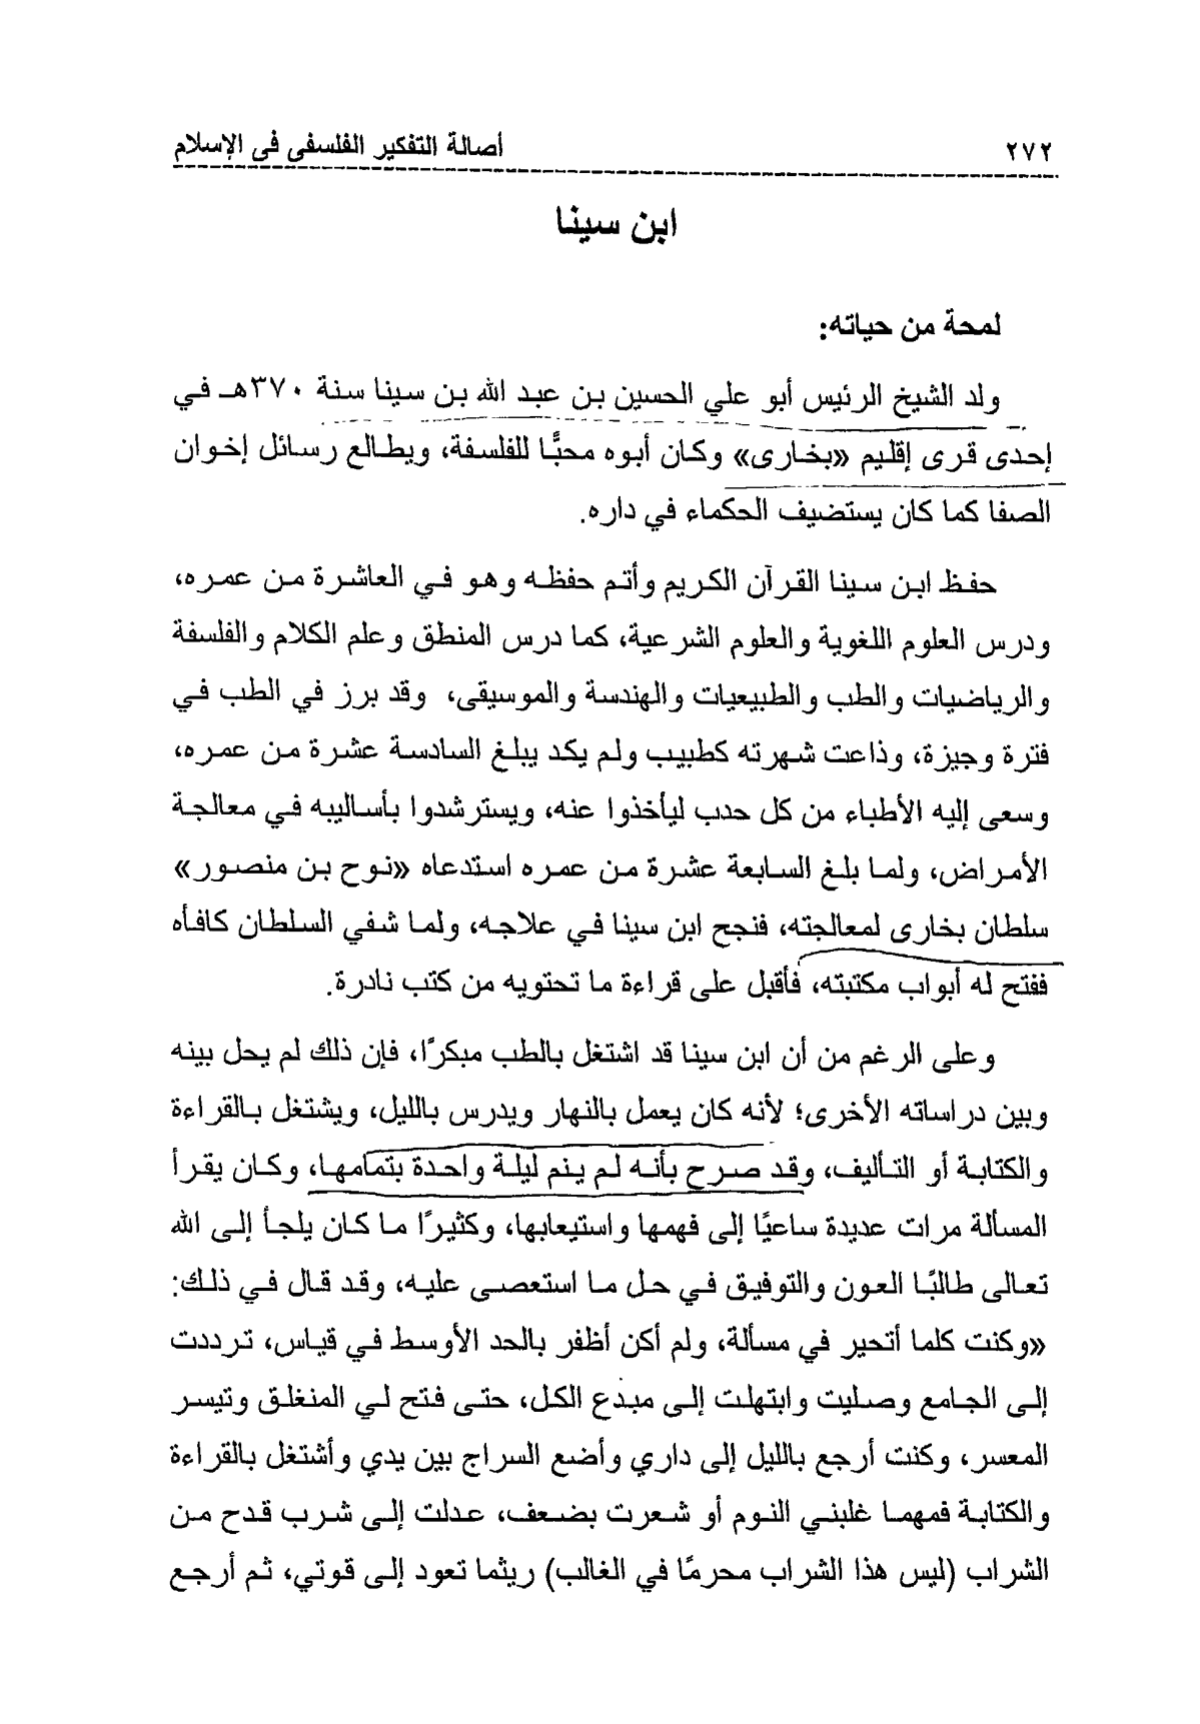 ٢٧٢ أصالة التفكير الفلسفى فى الإسلام
ابن سينا
لمحة من حياته:
ولد الشيخ الرئيس أبو علي الحسين بن عبد الله بن سينا سنة ٣٧٠هـ في
إحدى قرى إقليم «بخارى» وكان أبوه محبًّا للفلسفة، ويطالع رسائل إخوان
الصفا كما كان يستضيف الحكماء في داره.
حفظ ابن سينا القرآن الكريم وأتم حفظه وهو في العاشرة من عمره،
ودرس العلوم اللغوية والعلوم الشرعية، كما درس المنطق وعلم الكلام والفلسفة
والرياضيات والطب والطبيعيات والهندسة والموسيقى، وقد برز في الطب في
فترة وجيزة، وذاعت شهرته كطبيب ولم يكد يبلغ السادسة عشرة من عمره،
وسعى إليه الأطباء من كل حدب ليأخذوا عنه، ويسترشدوا بأساليبه في معالجة
الأمراض، ولما بلغ السابعة عشرة من عمره استدعاه «نوح بن منصور»
سلطان بخارى لمعالجته، فنجح ابن سينا في علاجه، ولما شفي السلطان كافأه
ففتح له أبواب مكتبته، فأقبل على قراءة ما تحتويه من كتب نادرة.
وعلى الرغم من أن ابن سينا قد اشتغل بالطب مبكرًا، فإن ذلك لم يحل بينه
وبين دراساته الأخرى؛ لأنه كان يعمل بالنهار ويدرس بالليل، ويشتغل بالقراءة
والكتابة أو التأليف، وقد صرح بأنه لم ينم ليلة واحدة بتمامها، وكان يقرأ
المسألة مرات عديدة ساعيًا إلى فهمها واستيعابها، وكثيرًا ما كان يلجأ إلى الله
تعالى طالبًا العون والتوفيق في حل ما استعصى عليه، وقد قال في ذلك:
«وكنت كلما أتحير في مسألة، ولم أكن أظفر بالحد الأوسط في قياس، ترددت
إلى الجامع وصليت وابتهلت إلى مبدع الكل، حتى فتح لي المنغلق وتيسر
المعسر، وكنت أرجع بالليل إلى داري وأضع السراج بين يدي وأشتغل بالقراءة
والكتابة فمهما غلبني النوم أو شعرت بضعف، عدلت إلى شرب قدح من
الشراب (ليس هذا الشراب محرمًا في الغالب) ريثما تعود إلى قوتي، ثم أرجع